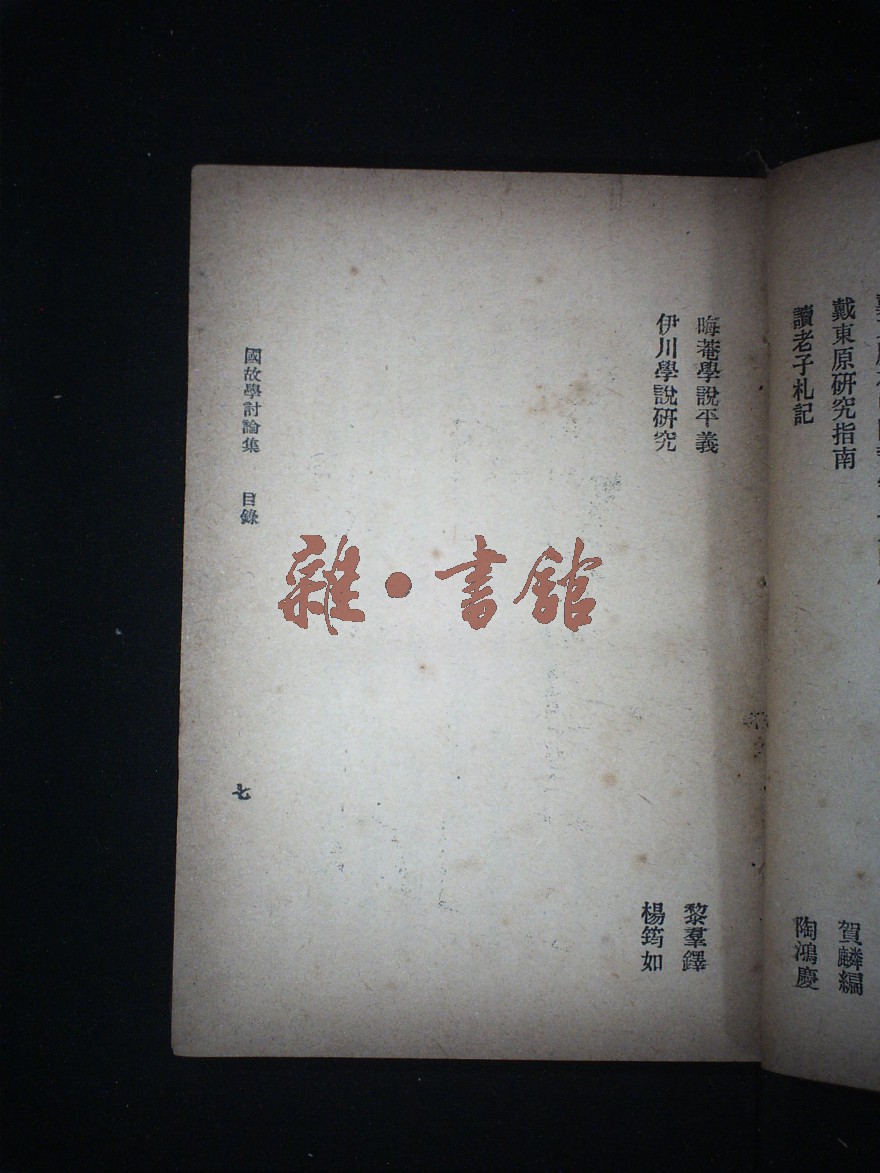 戴東原研究指南
賀麟編
讀老子札記
陶鴻慶
晦菴學說平義
黎羣鐸
伊川學說研究
楊筠如
國故學討論集 目錄
七
雜·書館